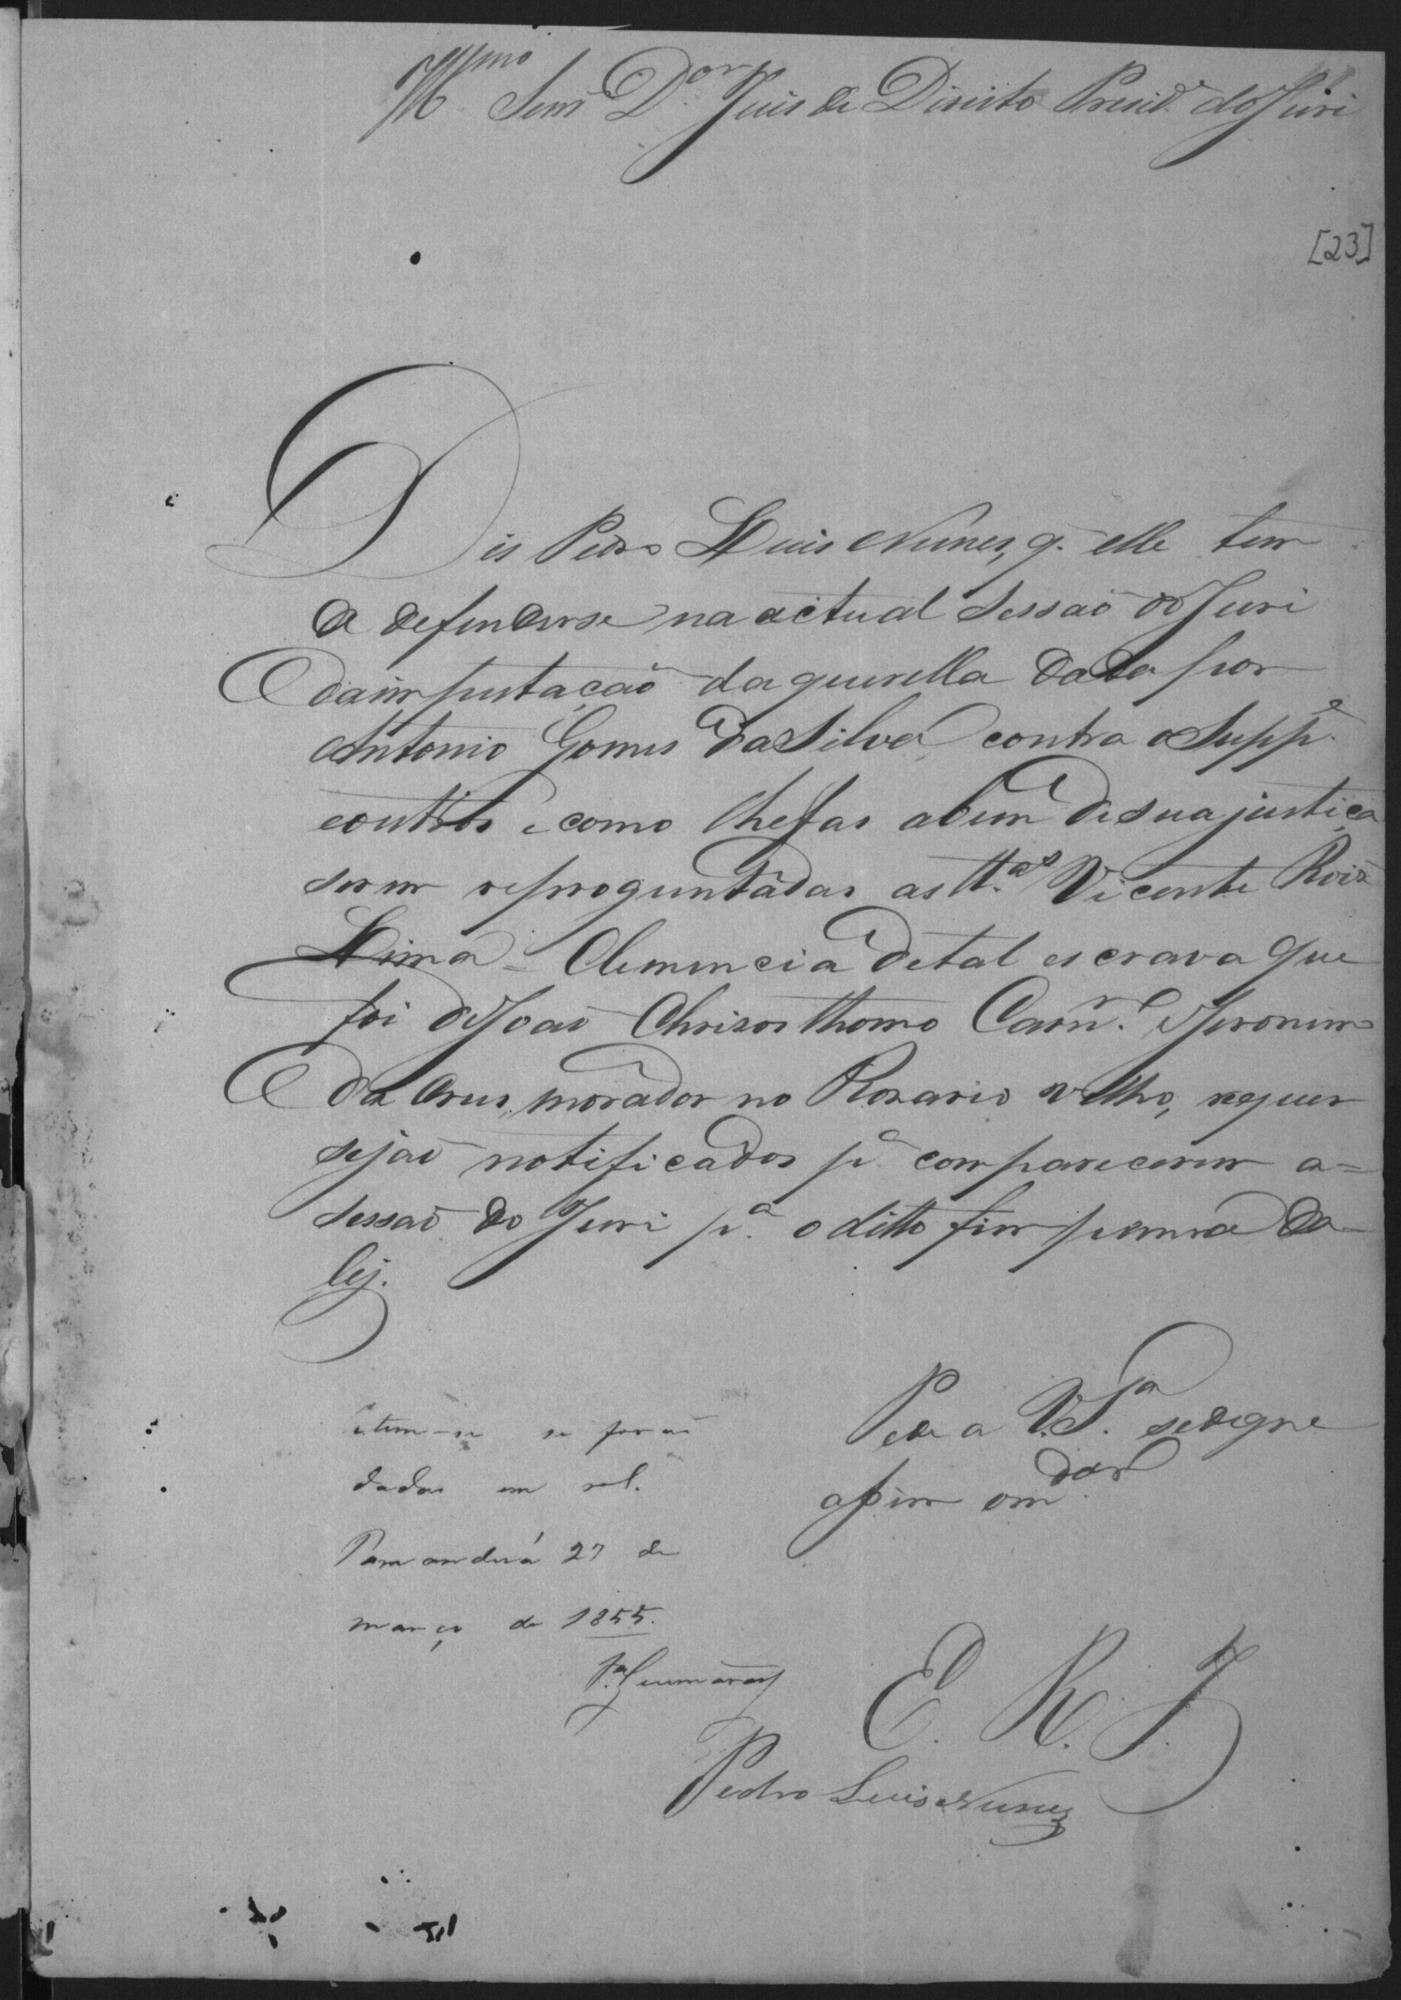 Illmo Senr Dor Juis de Direito Presid.e do Juri
[23]
Dis Pedro Luis Nunes, q. elle tem
a defenderse na actual sessaõ do Juri
da imputaçaõ da querella dada por
Antonio Gomes da Silva contra o Supp.e
e outros e como lhe fas abem de sua justiça
serem reproguntadas as tt.as Vicente Roiz
Lima = Clemencia de tal escrava que
foi de Joaõ Chrisosthomo Carn.ro e Jeronimo
da Crus, morador no Rozario velho, requer
sejaõ notificados p.a comparecerem a=
sessaõ do Juri p.a o ditto fim penna da
lej.
Pede a V.S.a se digne
assim om dar
Citem-se se foraõ
dadas em rol.
Tamanduá 27 de
março de 1855.
F.a Guimarães
E. R. J.
Pedro Luis Nunes